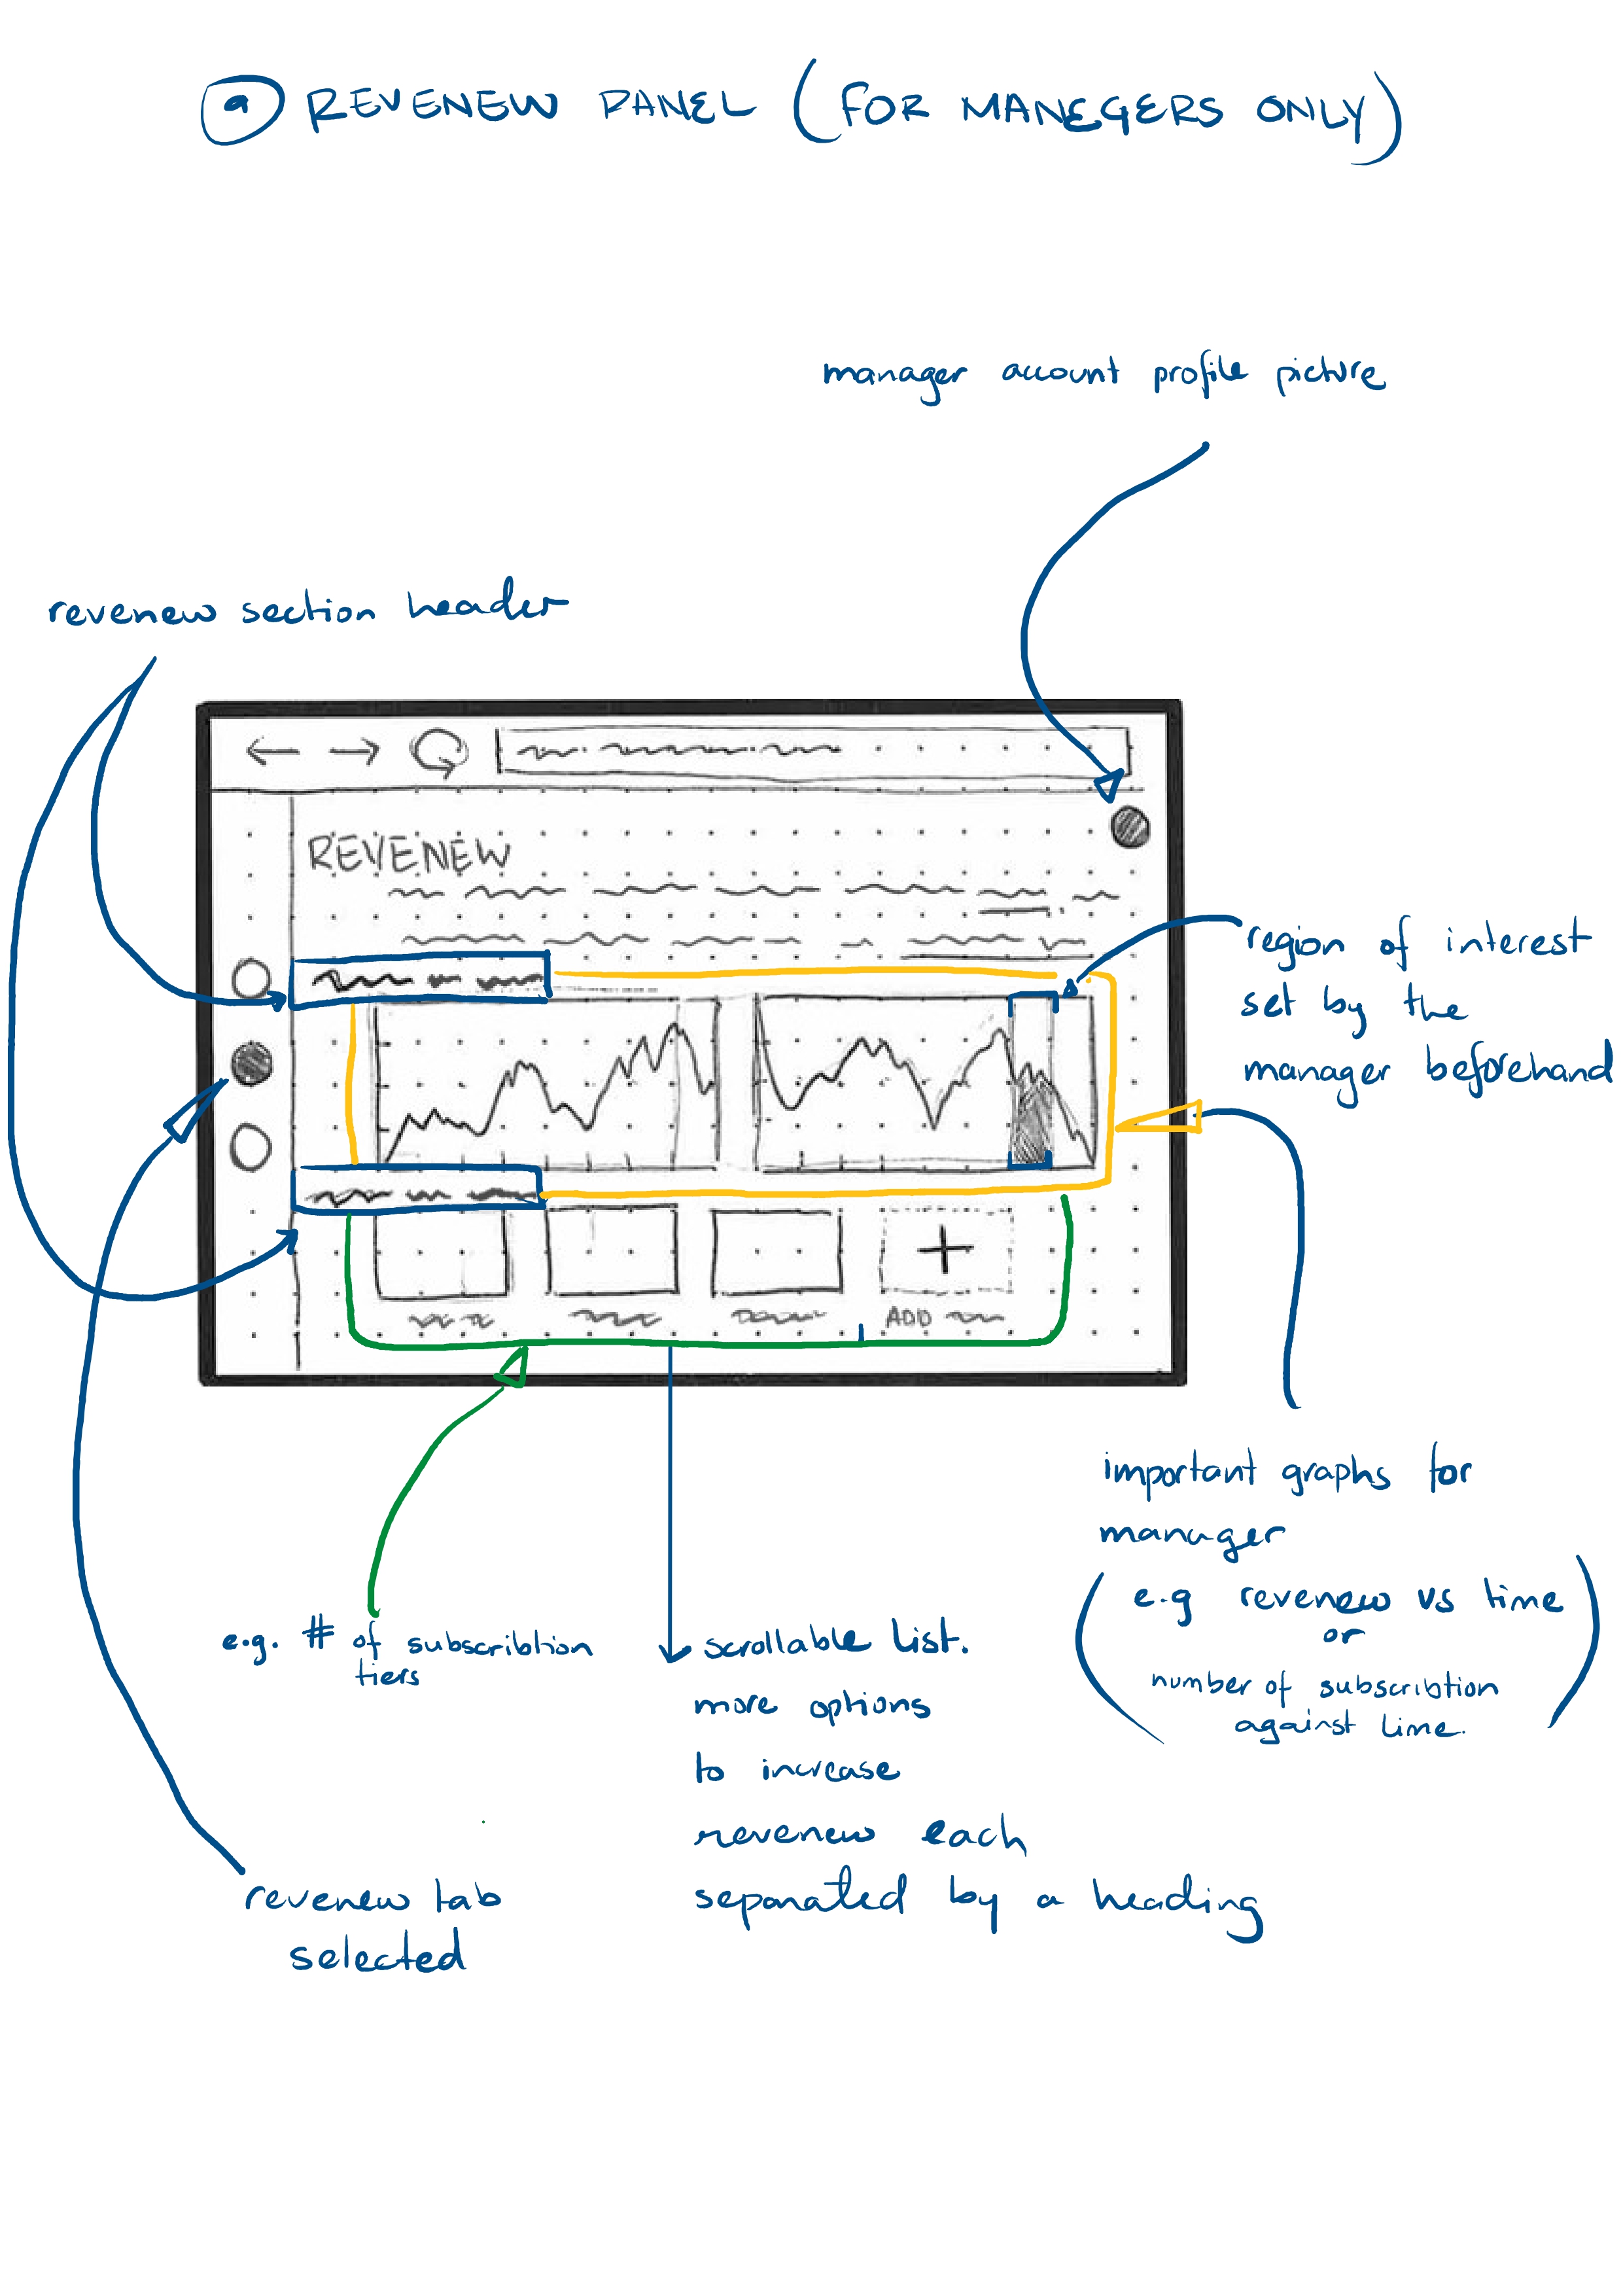 a REVENEW PANEL (FOR MANEGERS ONLY)
manager account profile picture
revenew section header
REVENEW
region of interest
set by the
manager beforehand
ADD
important graphs for
manager
(e.g revenew vs time
or
number of subscribtion
against time.)
e.g. # of subscribtion
tiers
scrollable list.
more options
to increase
revenew each
separated by a heading
revenew tab
selected